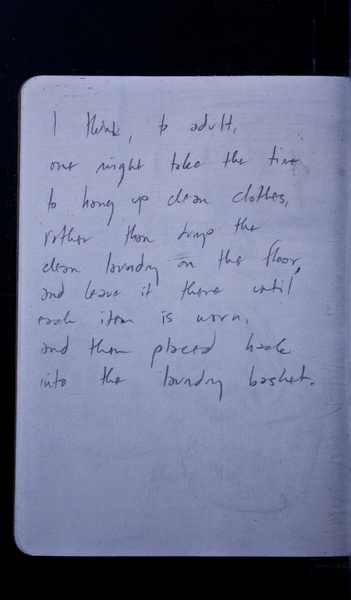 I think, to adult,
one might take the time
to hang up clean clothes,
rather than dump the
clean laundry on the floor,
and leave it there until
each item is worn,
and then placed back
into the laundry basket.